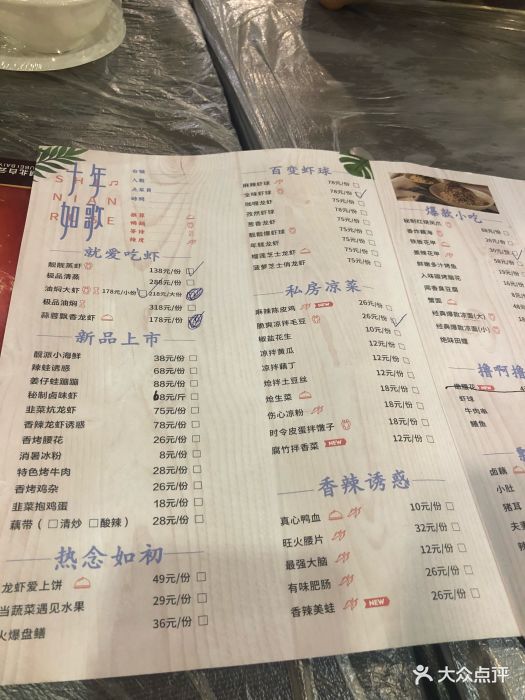 十年
如歌
SHI
NIAN
R
E
台号
人数
点菜员
时间
推荐
辣度
就爱吃虾
靓靓蒸虾 138元/份
极品清蒸 288元/份
油焖大虾 178元/小份 218元/大份
极品油焖 318元/份
蒜蓉飘香龙虾 178元/份
新品上市
靓派小海鲜 38元/份
辣蛙诱惑 68元/份
姜仔蛙蹦蹦 88元/份
秘制卤味虾 68元/斤
韭菜炕龙虾 78元/份
香辣龙虾诱惑 78元/份
香烤腰花 26元/份
消暑冰粉 8元/份
特色烤牛肉 28元/份
香烤鸡杂 26元/份
韭菜抱鸡蛋 18元/份
藕带（□清炒 □酸辣） 28元/份
热念如初
龙虾爱上饼 49元/份
当蔬菜遇见水果 29元/份
火爆盘鳝 36元/份
百变虾球
麻辣虾球 78元/份
全味虾球 78元/份
咖喱龙虾 75元/份
孜然虾球 78元/份
葱香龙虾 75元/份
靓靓爆虾球 78元/份
年糕龙虾 75元/份
榴莲芝士龙虾 75元/份
菠萝芝士俏龙虾 75元/份
私房凉菜
麻辣陈皮鸡 NEW 26元/份
脆爽凉拌毛豆 26元/份
椒盐花生 10元/份
凉拌黄瓜 12元/份
凉拌藕丁 12元/份
炝拌土豆丝 12元/份
炝生菜 18元/份
伤心凉粉 18元/份
时令皮蛋拌馓子 18元/份
腐竹拌香菜 NEW 12元/份
香辣诱惑
真心鸭血 10元/份
旺火腰片 32元/份
最强大脑 12元/份
有味肥肠 26元/份
香辣美蛙 NEW 26元/份
爆款小吃
秘制红烧凤爪
香炸藕海
铁板花甲
姜辣花甲
鲜嫩多汁鲍茄
人味碳烤茄子
闻香臭豆腐
蟹圆
经典爆款凉面(大)
经典爆款凉面(小)
绝味田螺
撸啊撸
嫩腰花 NEW
虾球
牛肉串
鳝鱼
卤藕
小肚
猪耳
夫妻
大众点评